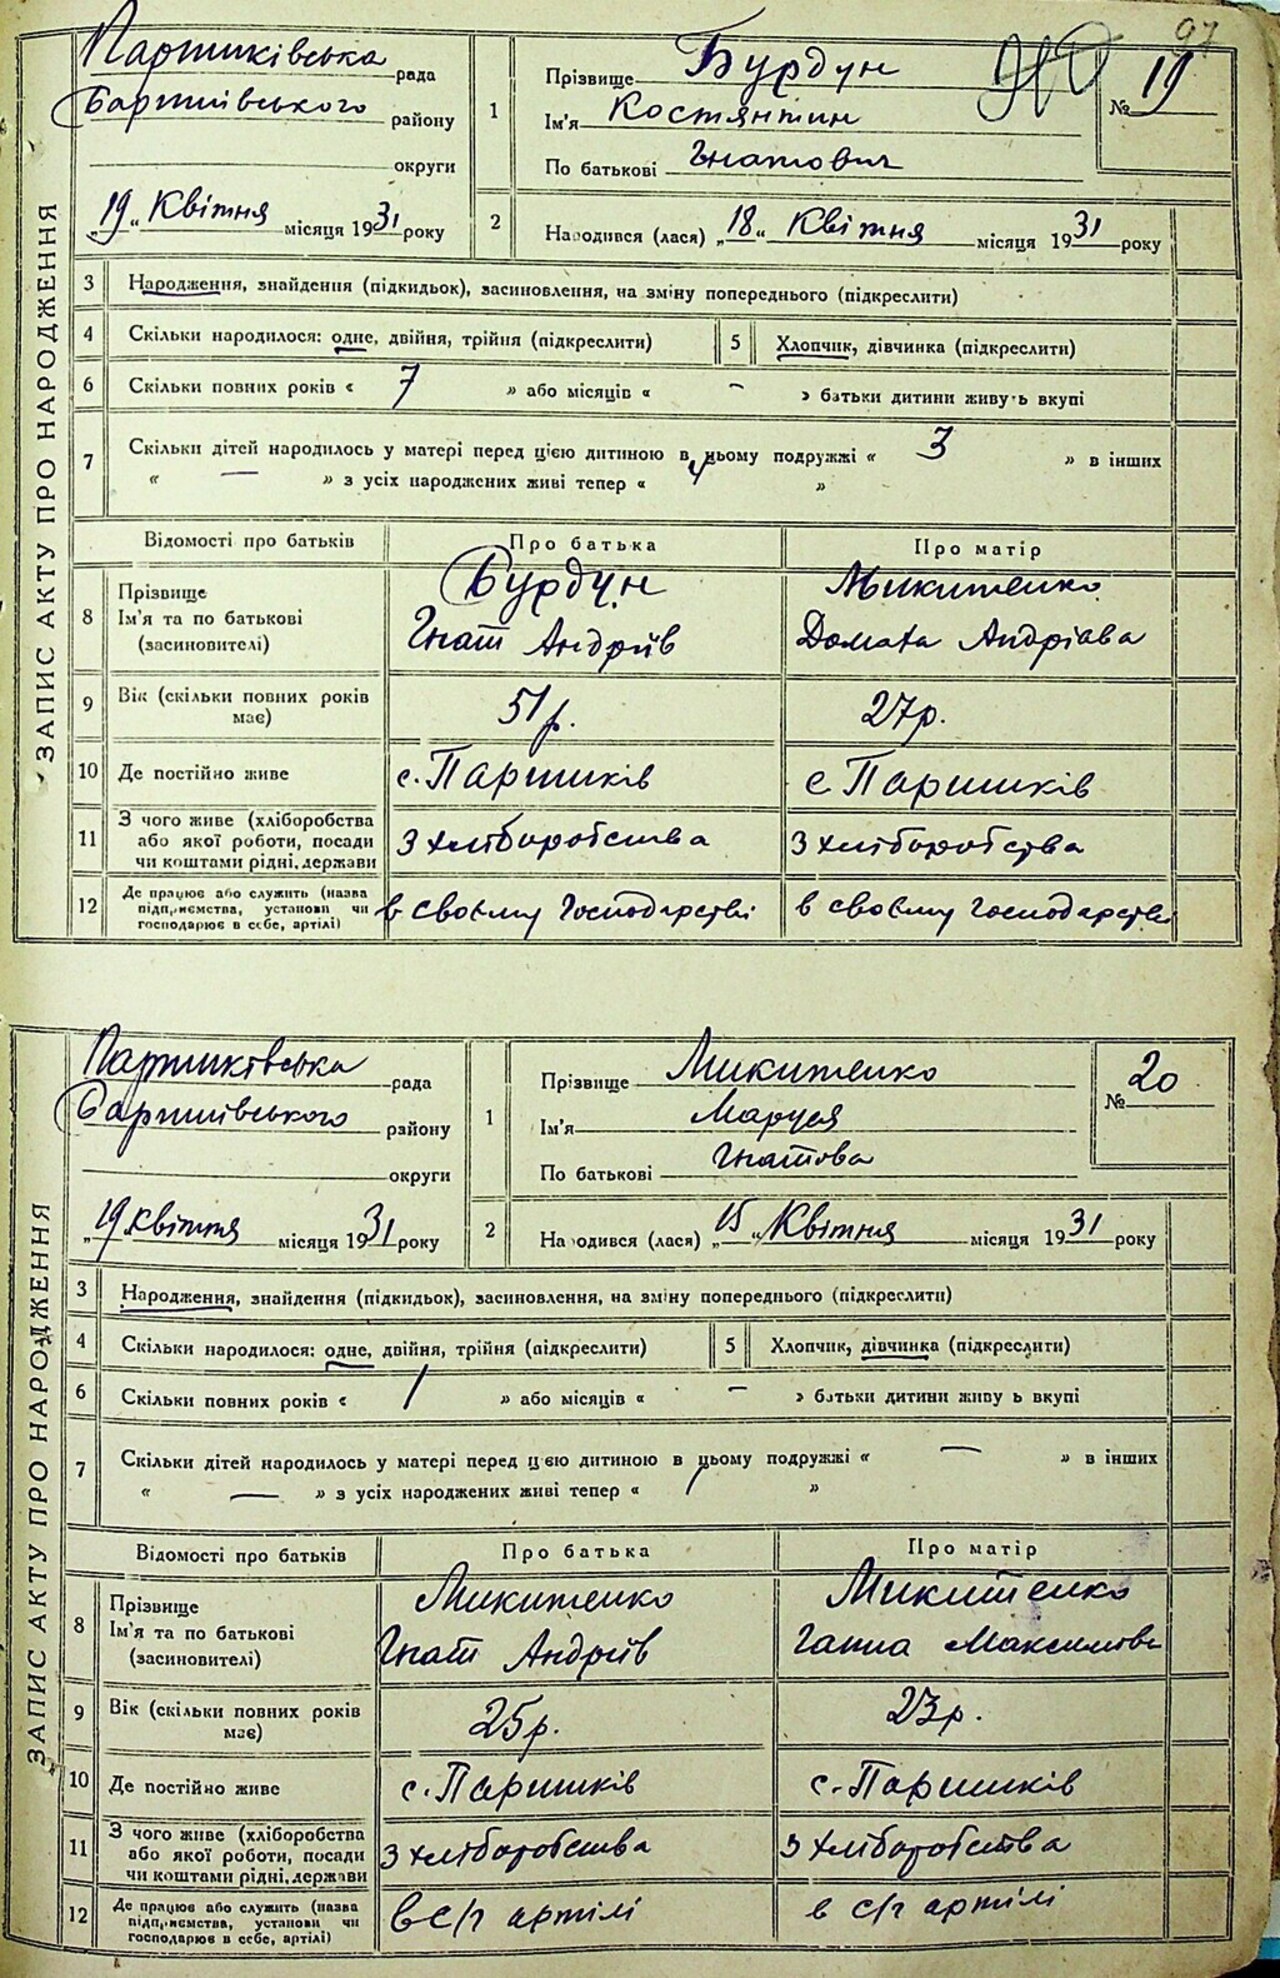 97
ЗАПИС АКТУ ПРО НАРОДЖЕННЯ
Паришківська рада
Баришівського району
округи
„19“ Квітня місяця 1931 року
1
Прізвище Бурдун
Ім'я Костянтин
По батькові Гнатович
№ 19
2
Народився (лася) „18“ Квітня місяця 1931 року
3 Народження, знайдення (підкидьок), засиновлення, на зміну попереднього (підкреслити)
4 Скільки народилося: одне, двійня, трійня (підкреслити)
5 Хлопчик, дівчинка (підкреслити)
6 Скільки повних років « 7 » або місяців « – » батьки дитини живуть вкупі
7 Скільки дітей народилось у матері перед цією дитиною в цьому подружжі « 3 » в інших
« — » з усіх народжених живі тепер « 4 »
Відомості про батьків Про батька Про матір
8 Прізвище Бурдун Микитенко
Ім'я та по батькові Гнат Андріїв Домаха Андріѣва
(засиновителі)
9 Вік (скільки повних років має) 51 р. 27 р.
10 Де постійно живе с. Паришків с Паришків
11 З чого живе (хліборобства
або якої роботи, посади З хліборобства З хліборобства
чи коштами рідні, держави
12 Де працює або служить (назва
підприємства, установи чи в своєму господарстві в своєму господарстві
господарює в себе, артілі)
ЗАПИС АКТУ ПРО НАРОДЖЕННЯ
Паришківська рада
Баришівського району
округи
„19“ квітня місяця 1931 року
1
Прізвище Микитенко
Ім'я Маруся
По батькові Гнатова
№ 20
2
Народився (лася) „15“ Квітня місяця 1931 року
3 Народження, знайдення (підкидьок), засиновлення, на зміну попереднього (підкреслити)
4 Скільки народилося: одне, двійня, трійня (підкреслити)
5 Хлопчик, дівчинка (підкреслити)
6 Скільки повних років « 1 » або місяців « – » батьки дитини живуть вкупі
7 Скільки дітей народилось у матері перед цією дитиною в цьому подружжі « — » в інших
« — » з усіх народжених живі тепер « 1 »
Відомості про батьків Про батька Про матір
8 Прізвище Микитенко Микитенко
Ім'я та по батькові Гнат Андріїв Ганна Максимова
(засиновителі)
9 Вік (скільки повних років має) 25 р. 23 р.
10 Де постійно живе с. Паришків с. Паришків
11 З чого живе (хліборобства
або якої роботи, посади З хліборобства З хліборобства
чи коштами рідні, держави
12 Де працює або служить (назва
підприємства, установи чи в с/г артілі в с/г артілі
господарює в себе, артілі)